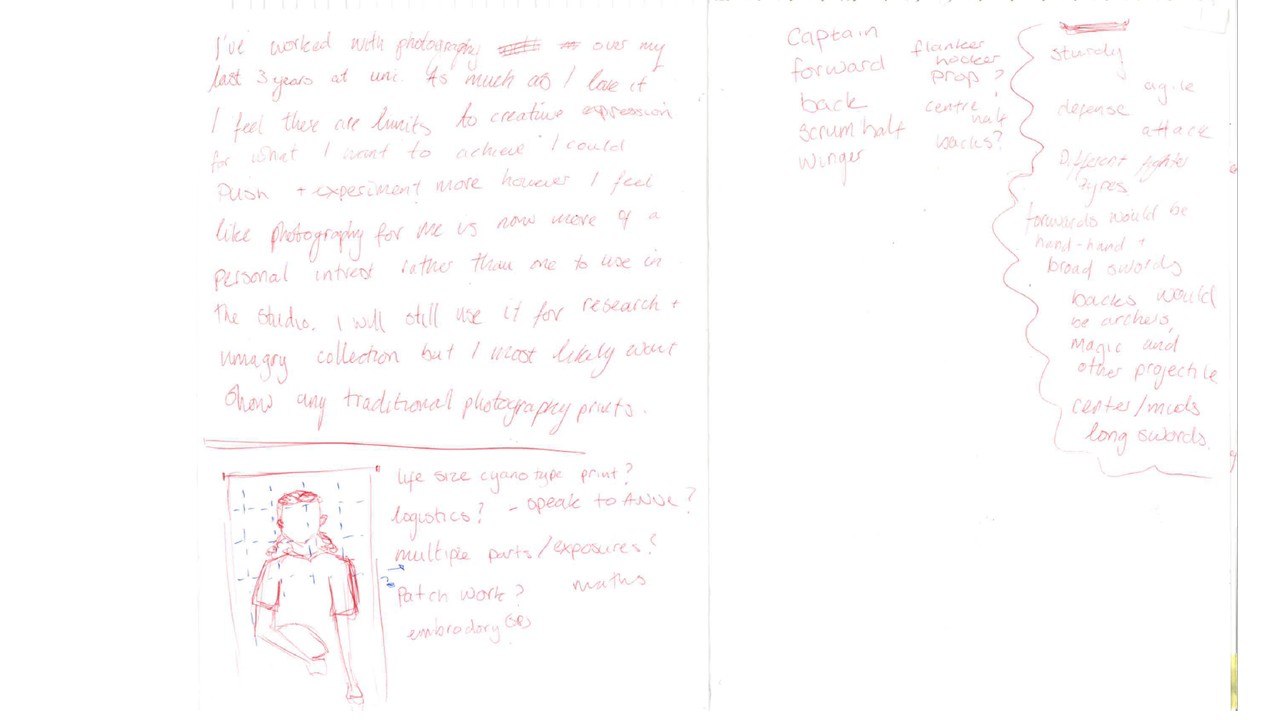 I've worked with photography over my
last 3 years at uni. As much as I love it
I feel there are limits to creative expression
for what I want to achieve I could
push + experiment more however I feel
like photography for me is now more of a
personal intrest rather than one to use in
the studio. I will still use it for research +
umagry collection but I most likely wont
show any traditional photography prints.
life size cyanotype print?
logistics? - speak to ?
multiple parts/exposures?
Patch work? maths
embrodory (sp)
Captain
forward
back
scrum half
winger
flanker
hooker
prop?
centre,
half
backs?
sturdy
agile
defense
attack
Different fighter
types
forwards would be
hand-hand +
broad swords
backs would
be archers,
magic and
other projectile
center/mids
long swords.